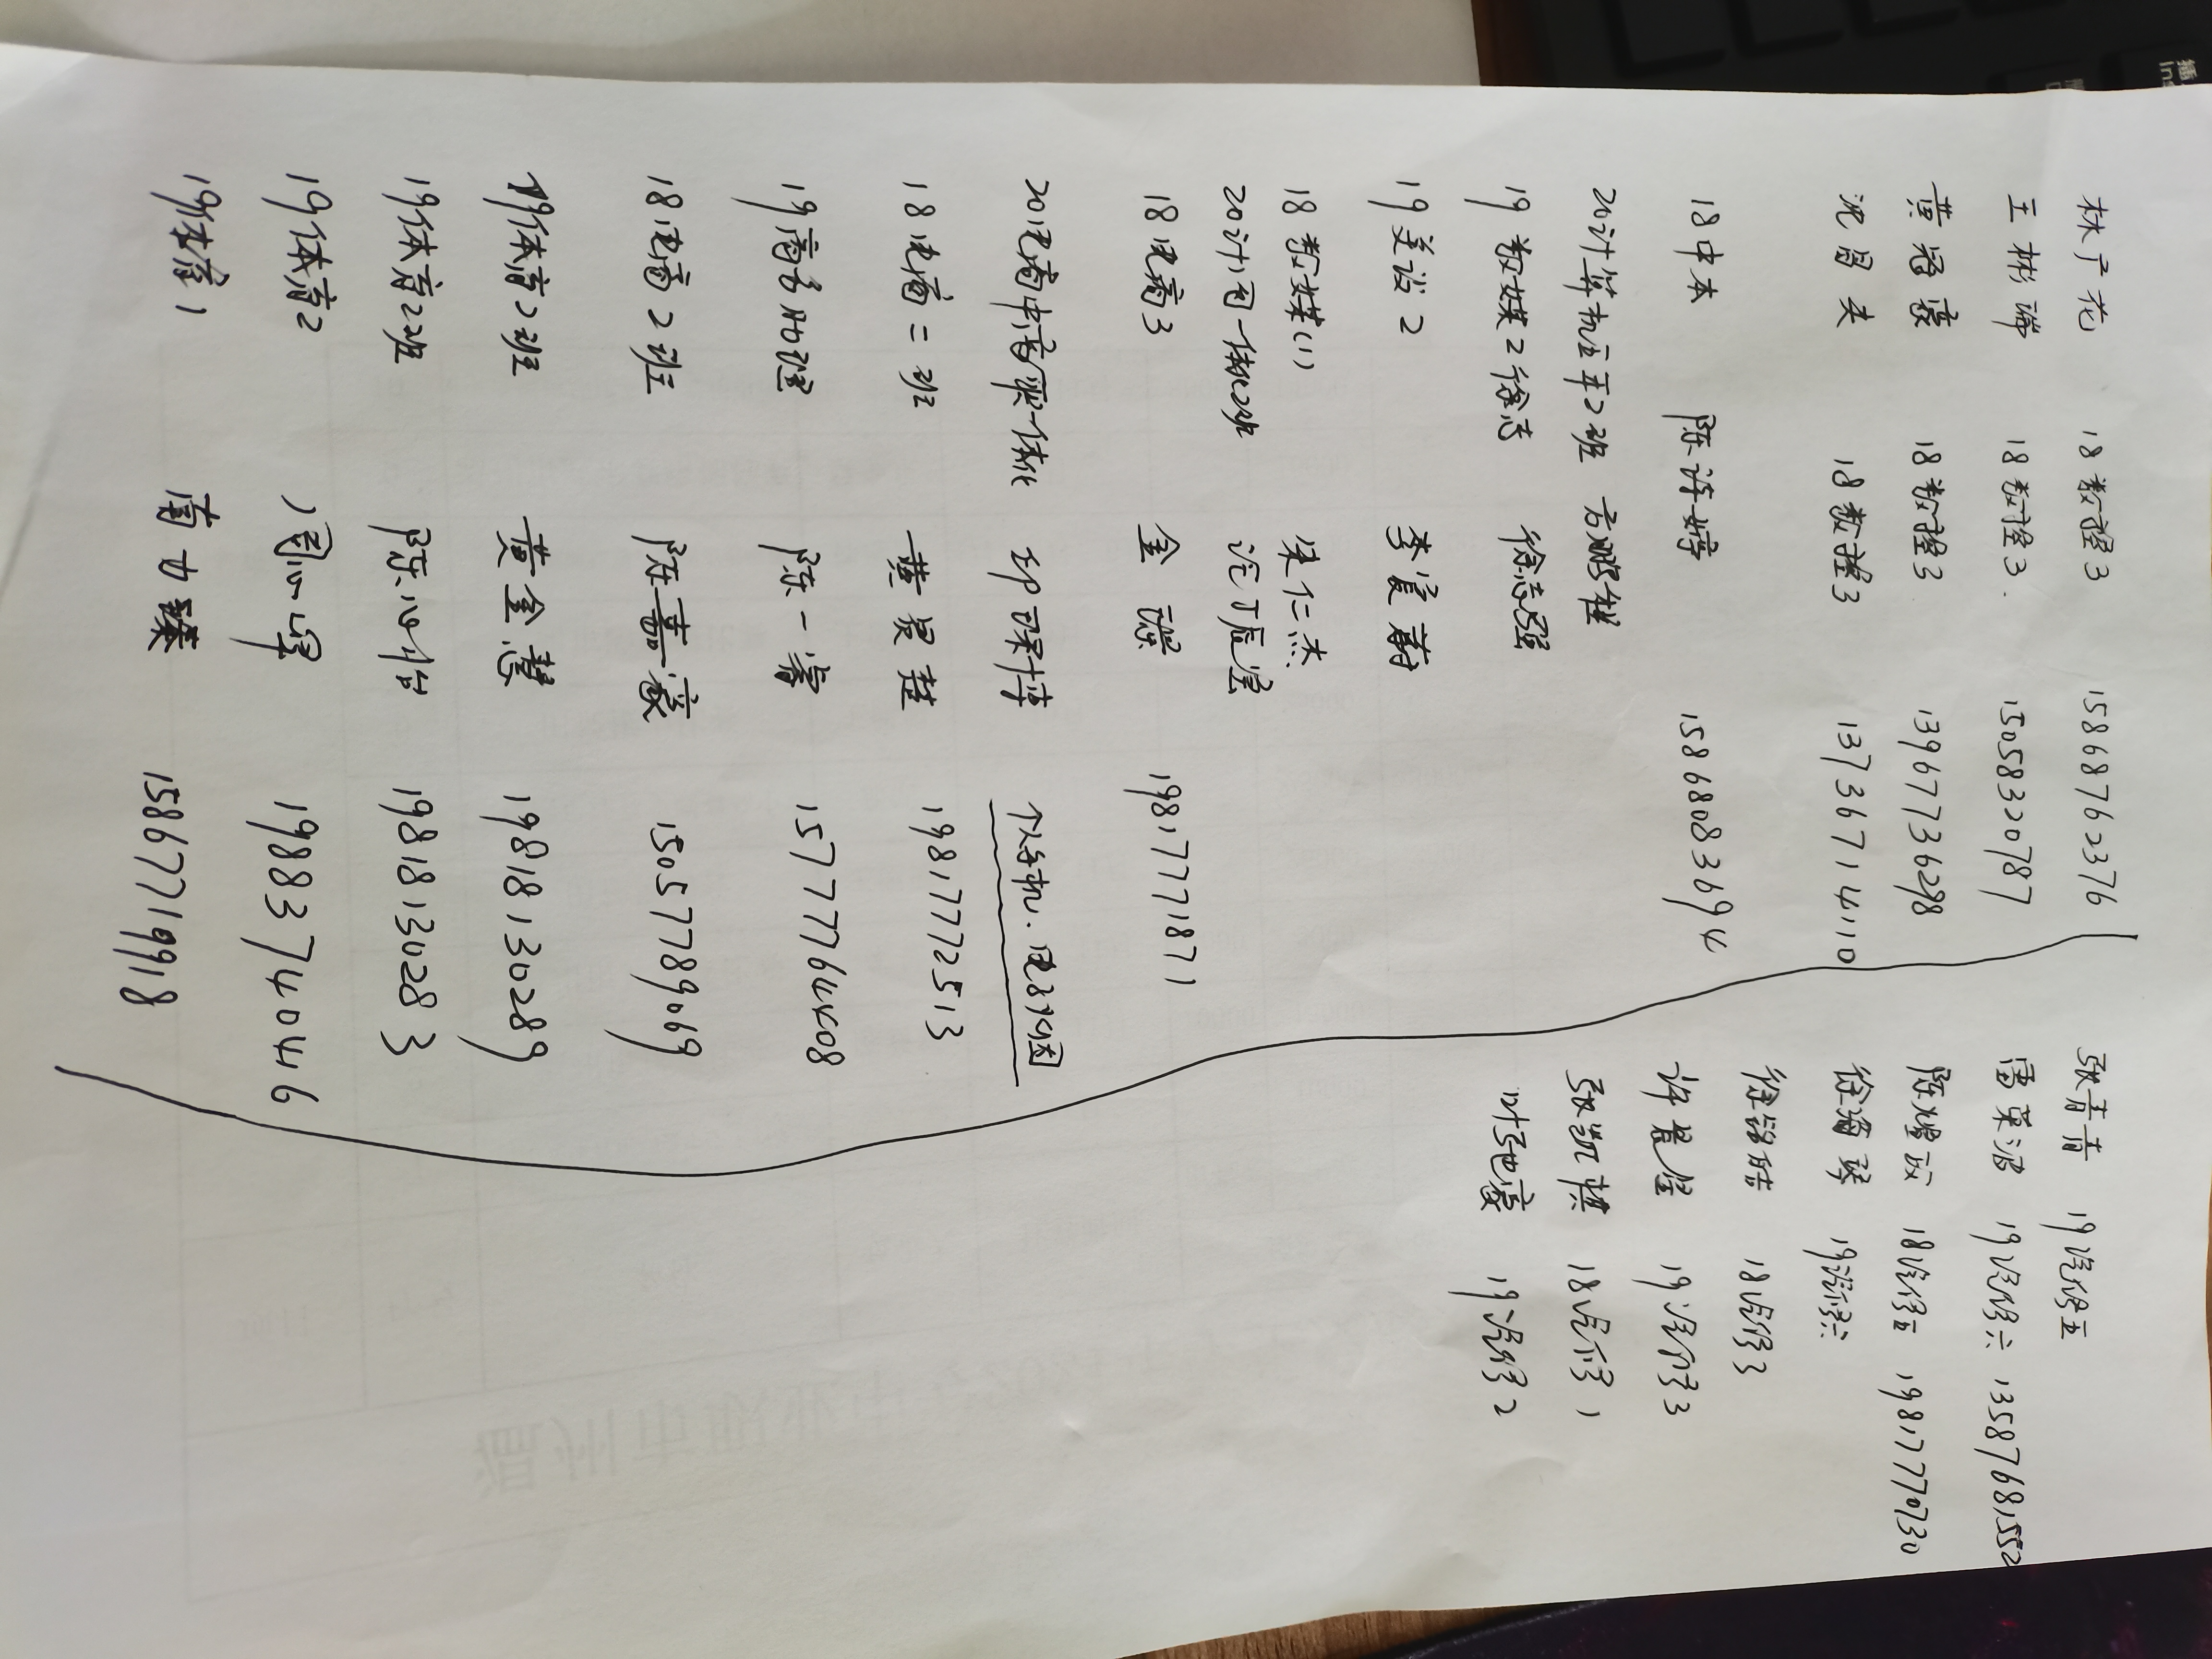 林广花 18数控3 15868762376
王彬瑞 18数控3. 15058320787
黄冠豪 18数控3 13967736298
沈昌夫 18数控3 13736714110
18中本 陈许婷 15868083694
20计算机三年2班 方鹏程
19数媒2徐志 徐志强
19美设2 李宣蔚
18数媒(1) 朱仁杰
20计 一体化2班
18电商3 金 19817771871
20电商中高职一体化 个人手机.
18电商二班 黄昊楚 19817772513
19商务 陈一睿 15777764408
18电商2班 陈嘉豪 15057789069
19体育2班 黄全慧 19818130289
19体育2班 陈 19818130283
19体育2 周 19883740446
19体育1 南力臻 15867719918
张青青 19汽修五
雷英波 19汽修六 13587681552
陈 18汽修五 19817770730
徐海琴 19汽修六
徐铭皓 18汽修3
许 19汽修3
张凯棋 18汽修1
叶弛豪 19汽修2